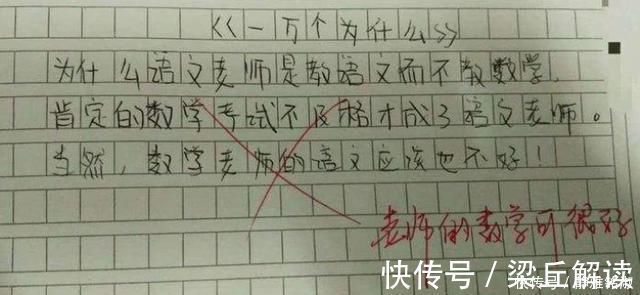 《一万个为什么》
为什么语文老师是教语文而不教数学,
肯定的数学考试不及格才成了语文老师。
当然,数学老师的语文应该也不好!
老师的数学可很好
快传号/梁丘解读